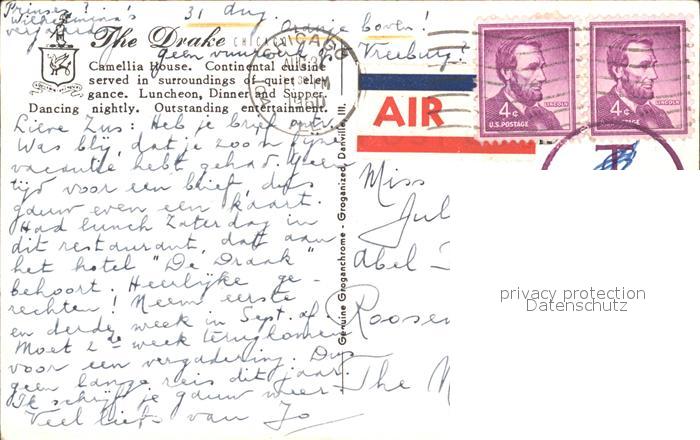 Prinses
Wilhelmina's
verjaardag
31 Aug.
Oranje boven!
geen vuurwerk op Vreeburg?
The Drake
CHICAGO
Camellia House. Continental cuisine
served in surroundings of quiet ele-
gance. Luncheon, Dinner and Supper.
Dancing nightly. Outstanding entertainment.
CHICAGO
AUG
PM
AIR
4¢
LINCOLN
U.S. POSTAGE
4¢
LINCOLN
U.S. POSTAGE
T
Lieve Zus: Heb je brief ontv.
Was blij, dat je zoo'n fijne
vacantie hebt gehad. Geen
tijd voor een brief, dus
gauw even een kaart.
Had lunch Zaterdag in
dit restaurant, dat aan
het hotel "De Draak"
behoort. Heerlijke ge-
rechten! Neem eerste
en derde week in Sept. af.
Moet 2de week terugkomen
voor een vergadering. Dus
geen lange reis dit jaar.
Ik schrijf je gauw weer.
Veel liefs van Jo
Genuine Groganchrome - Groganized, Danville, Ill.
Miss
Jul
Abel
Roosen
The N
privacy protection
Datenschutz